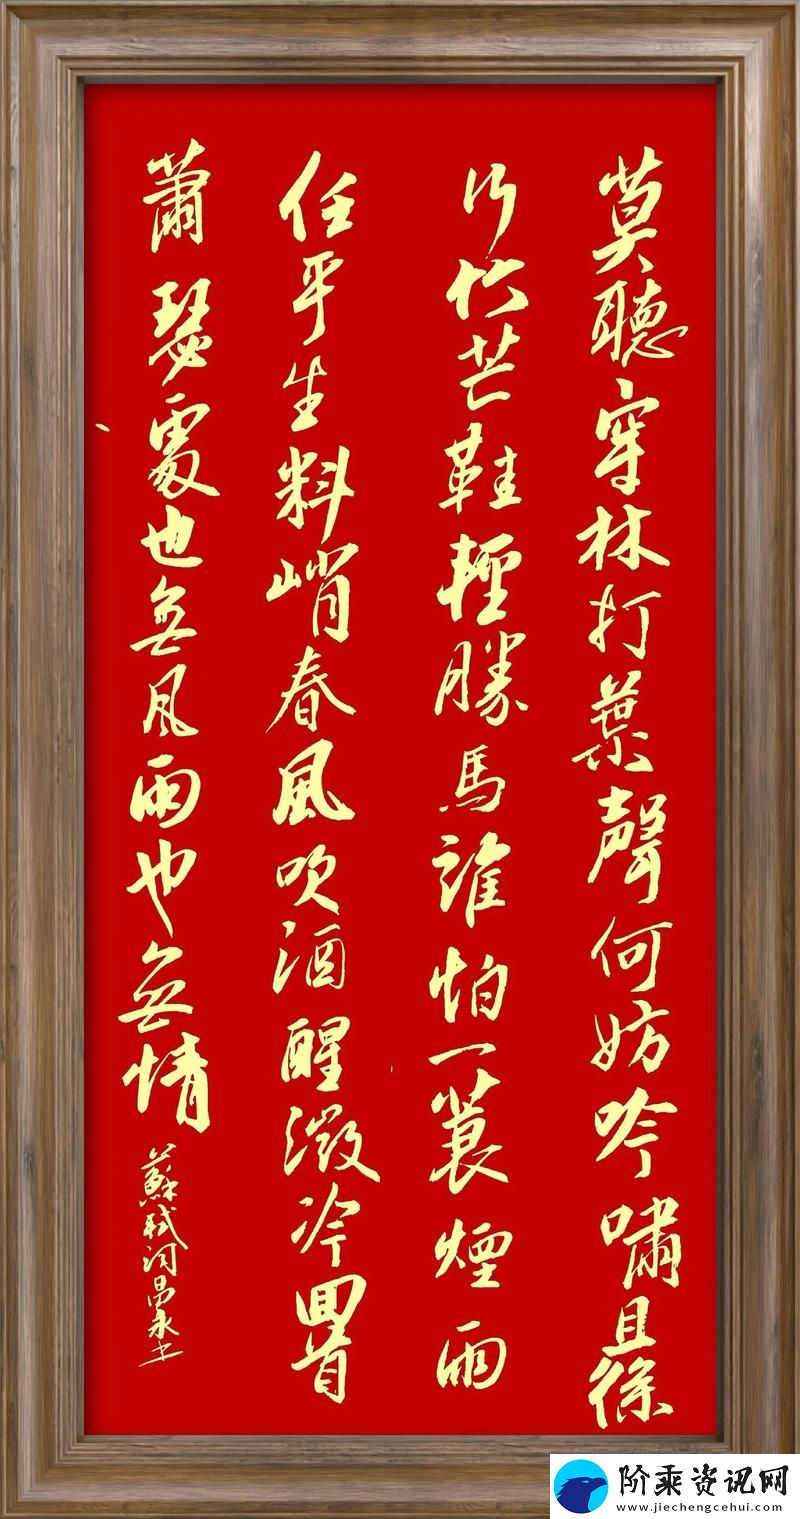 莫聽穿林打葉聲何妨吟嘯且徐
行竹芒鞋輕勝馬誰怕一蓑煙雨
任平生料峭春風吹酒醒微冷回首
蕭瑟處也無風雨也無情
蘇軾詞昌永書
阶乘资讯网
www.jiechengcehui.com